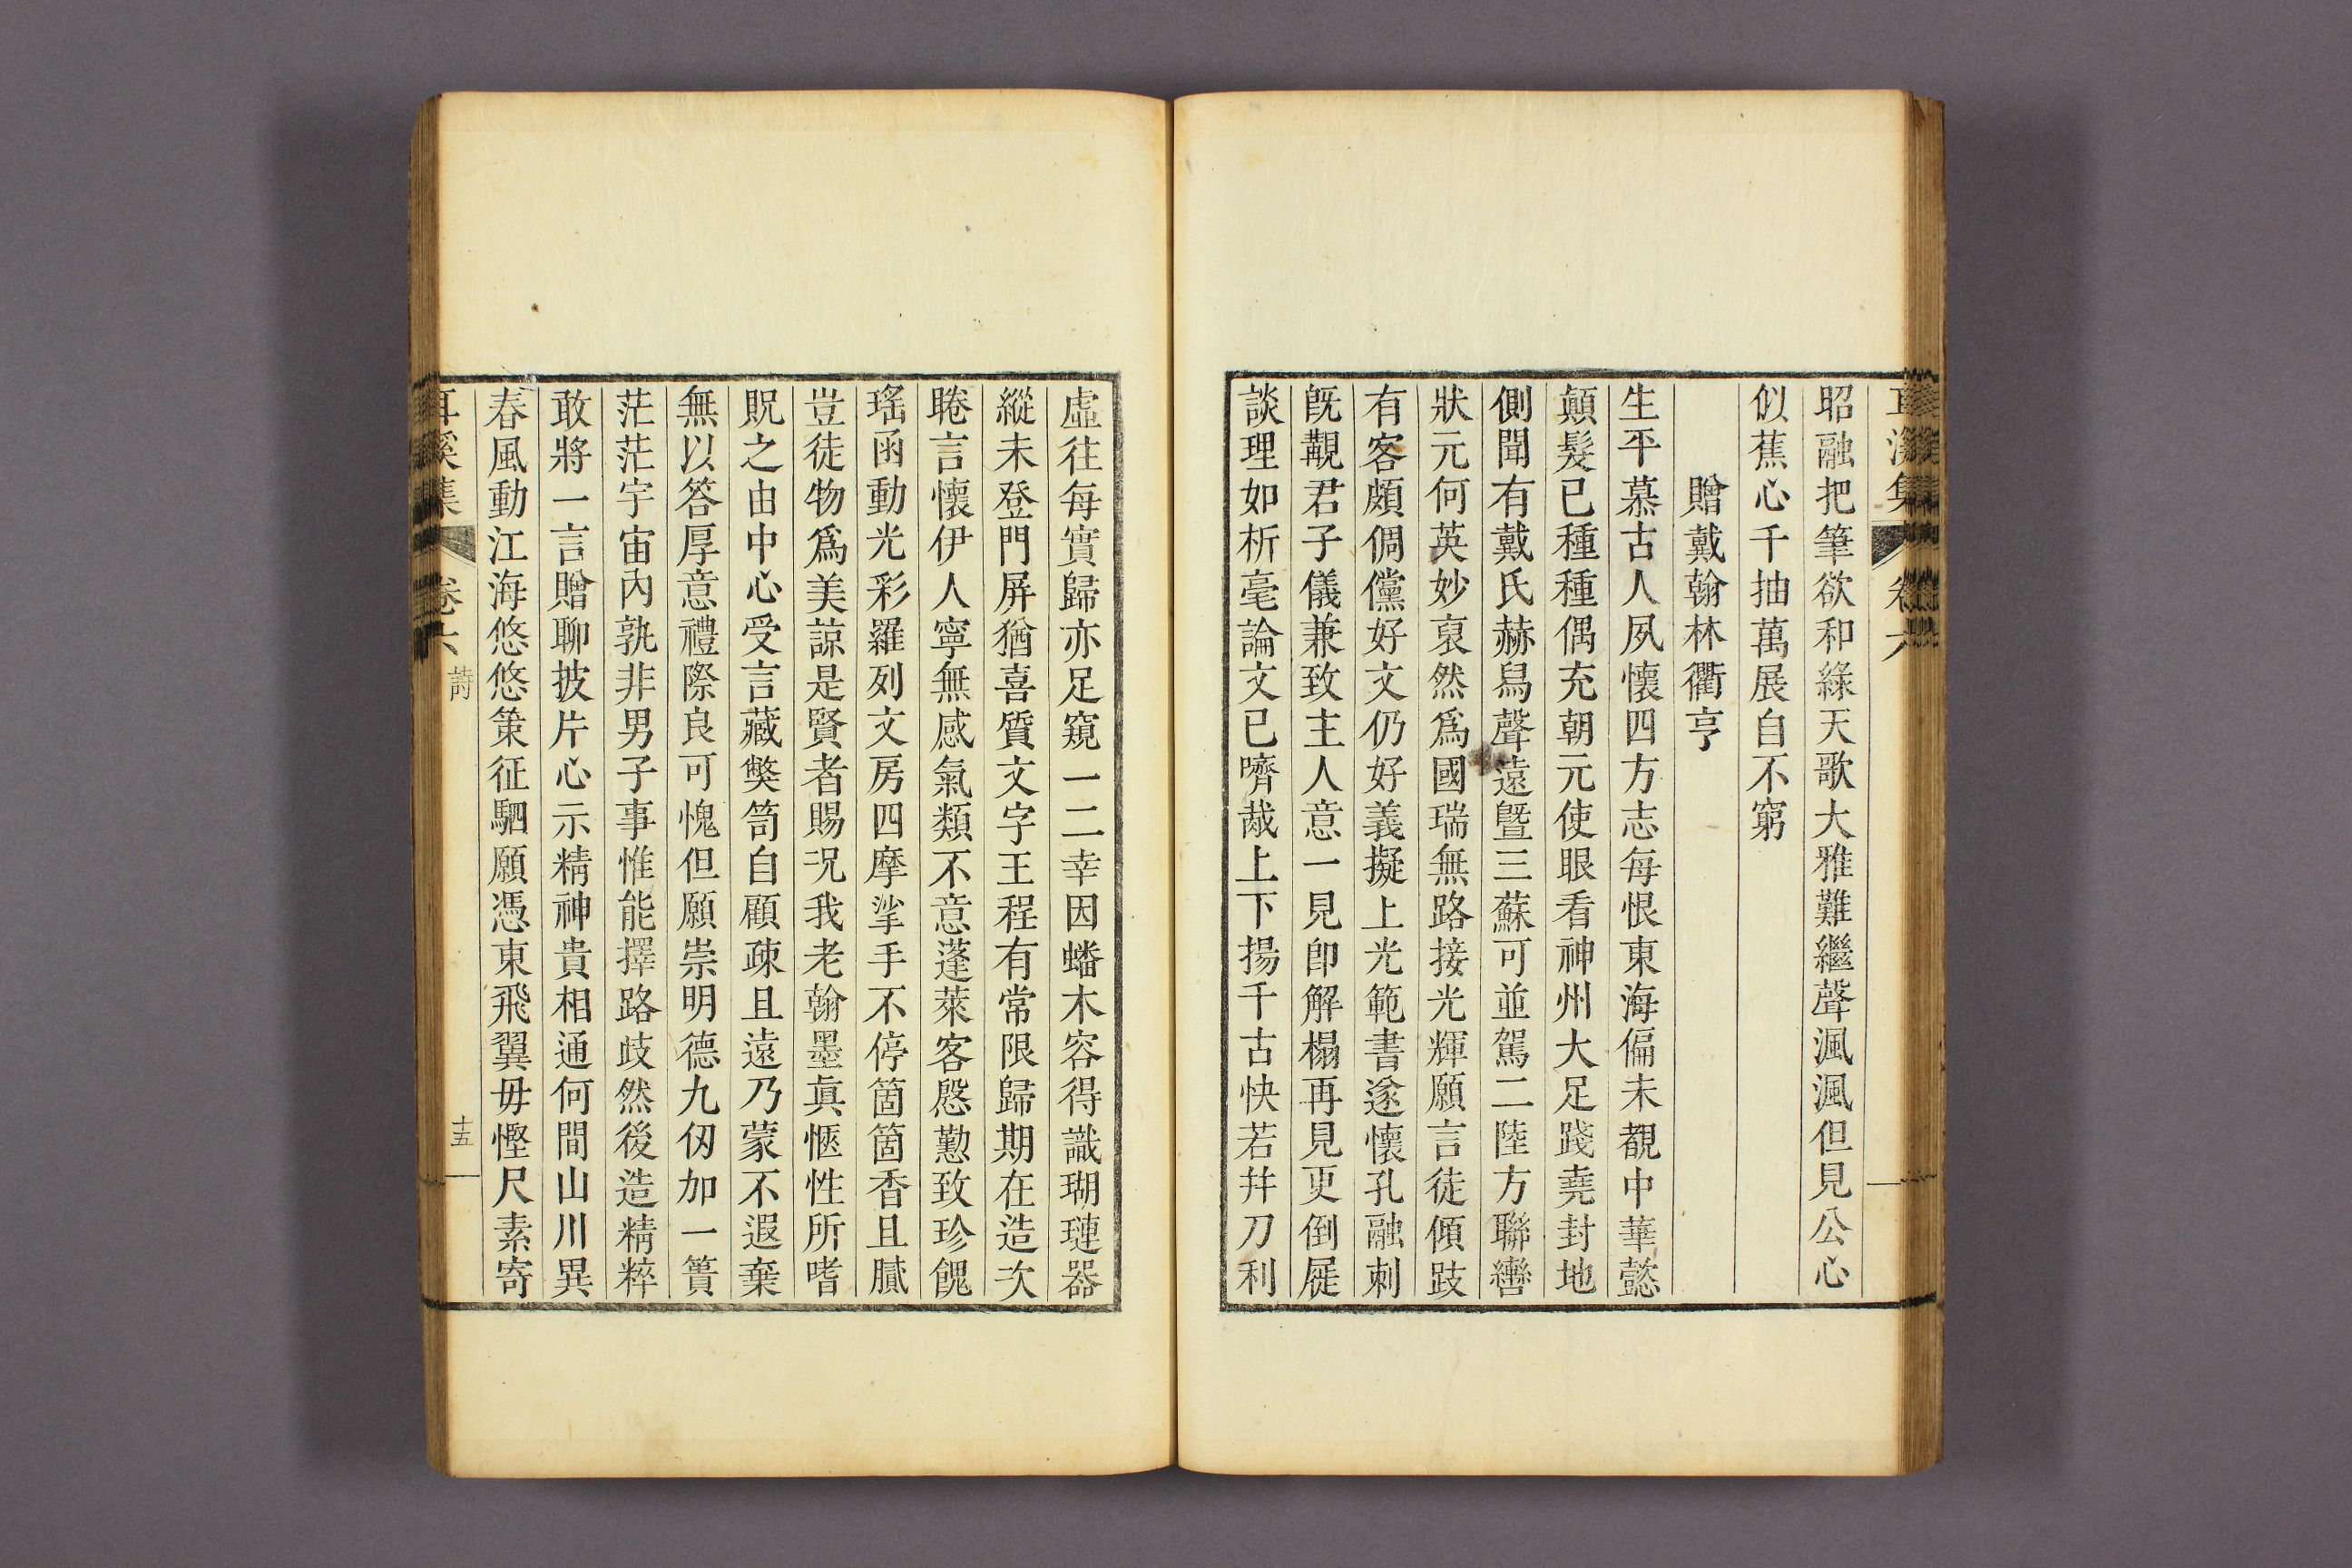 耳溪集 卷六
昭融把筆欲和綠天歌大雅難繼聲渢渢但見公心
似蕉心千抽萬展自不窮
贈戴翰林衢亨
生平慕古人夙懷四方志每恨東海偏未覩中華懿
顚髮已種種偶充朝元使眼看神州大足踐堯封地
側聞有戴氏赫舃聲遠曁三蘇可並駕二陸方聯轡
狀元何英妙裒然爲國瑞無路接光輝願言徒傾跂
有客頗倜儻好文仍好義擬上光範書遂懷孔融刺
旣覯君子儀兼致主人意一見卽解榻再見更倒屣
談理如析毫論文已嚌胾上下揚千古快若幷刀利
虛往每實歸亦足窺一二幸因蟠木容得識瑚璉器
縱未登門屏猶喜質文字王程有常限歸期在造次
睠言懷伊人寧無感氣類不意蓬萊客慇懃致珍餽
瑤函動光彩羅列文房四摩挲手不停箇箇香且膩
豈徒物爲美諒是賢者賜况我老翰墨眞愜性所嗜
貺之由中心受言藏獘笥自顧疎且遠乃蒙不遐棄
無以答厚意禮際良可愧但願崇明德九仞加一簣
茫茫宇宙內孰非男子事惟能擇路歧然後造精粹
敢將一言贈聊披片心示精神貴相通何間山川異
春風動江海悠悠策征駟願憑東飛翼毋慳尺素寄
耳溪集 卷六 詩 十五